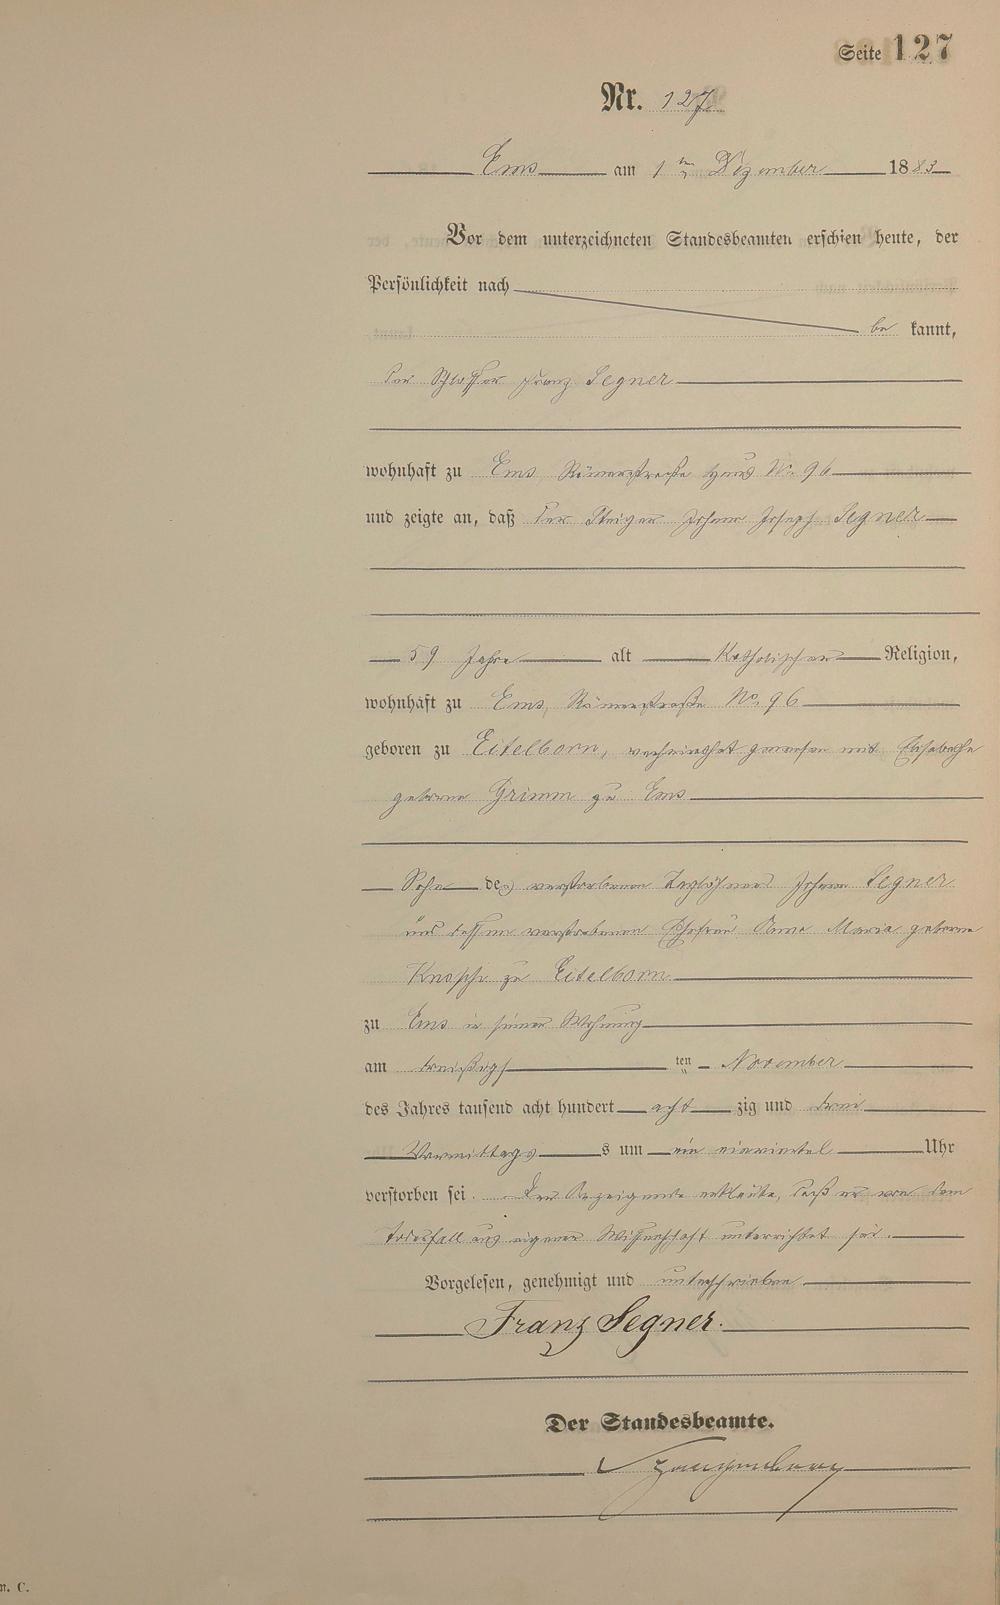 Seite 127
Nr. 127
Ems am 1ten Dezember 1883
Vor dem unterzeichneten Standesbeamten erschien heute, der
Persönlichkeit nach
be kannt,
der Schlosser Franz Segner
wohnhaft zu Ems Römerstraße Haus No 96
und zeigte an, daß der Steiger Johann Joseph Segner
59 Jahre alt Katholischer Religion,
wohnhaft zu Ems, Römerstraße No 96
geboren zu Eitelborn, verheirathet gewesen mit Elisabethe
geborene Grimm zu Ems
Sohn des verstorbenen Taglöhners Johann Segner
und dessen verstorbenen Ehefrau Anna Maria geborene
zu Eitelborn
zu Ems in seiner Wohnung
am dreißigs ten November
des Jahres tausend acht hundert acht zig und drei
Vormittags s um ein einviertel Uhr
verstorben sei. Der Anzeigende erklärte, daß er von dem
Todesfall aus eigener Wissenschaft unterrichtet sei.
Vorgelesen, genehmigt und unterschrieben
Franz Segner.
Der Standesbeamte.
n. C.